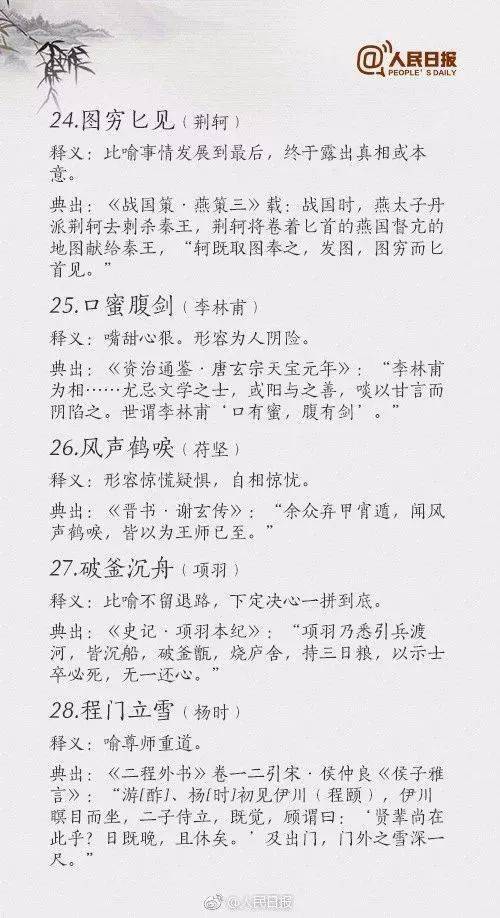 @人民日报
PEOPLE'S DAILY
24.图穷匕见（荆轲）
释义：比喻事情发展到最后，终于露出真相或本
意。
典出：《战国策·燕策三》载：战国时，燕太子丹
派荆轲去刺杀秦王，荆轲将卷着匕首的燕国督亢的
地图献给秦王，“轲既取图奉之，发图，图穷而匕
首见。”
25.口蜜腹剑（李林甫）
释义：嘴甜心狠。形容为人阴险。
典出：《资治通鉴·唐玄宗天宝元年》：“李林甫
为相……尤忌文学之士，或阳与之善，啖以甘言而
阴陷之。世谓李林甫‘口有蜜，腹有剑’。”
26.风声鹤唳（苻坚）
释义：形容惊慌疑惧，自相惊忧。
典出：《晋书·谢玄传》：“余众弃甲宵遁，闻风
声鹤唳，皆以为王师已至。”
27.破釜沉舟（项羽）
释义：比喻不留退路，下定决心一拼到底。
典出：《史记·项羽本纪》：“项羽乃悉引兵渡
河，皆沉船，破釜甑，烧庐舍，持三日粮，以示士
卒必死，无一还心。”
28.程门立雪（杨时）
释义：喻尊师重道。
典出：《二程外书》卷一二引宋·侯仲良《侯子雅
言》：“游[酢]、杨[时]初见伊川（程颐），伊川
瞑目而坐，二子侍立，既觉，顾谓曰：‘贤辈尚在
此乎？日既晚，且休矣。’及出门，门外之雪深一
尺。”
@人民日报